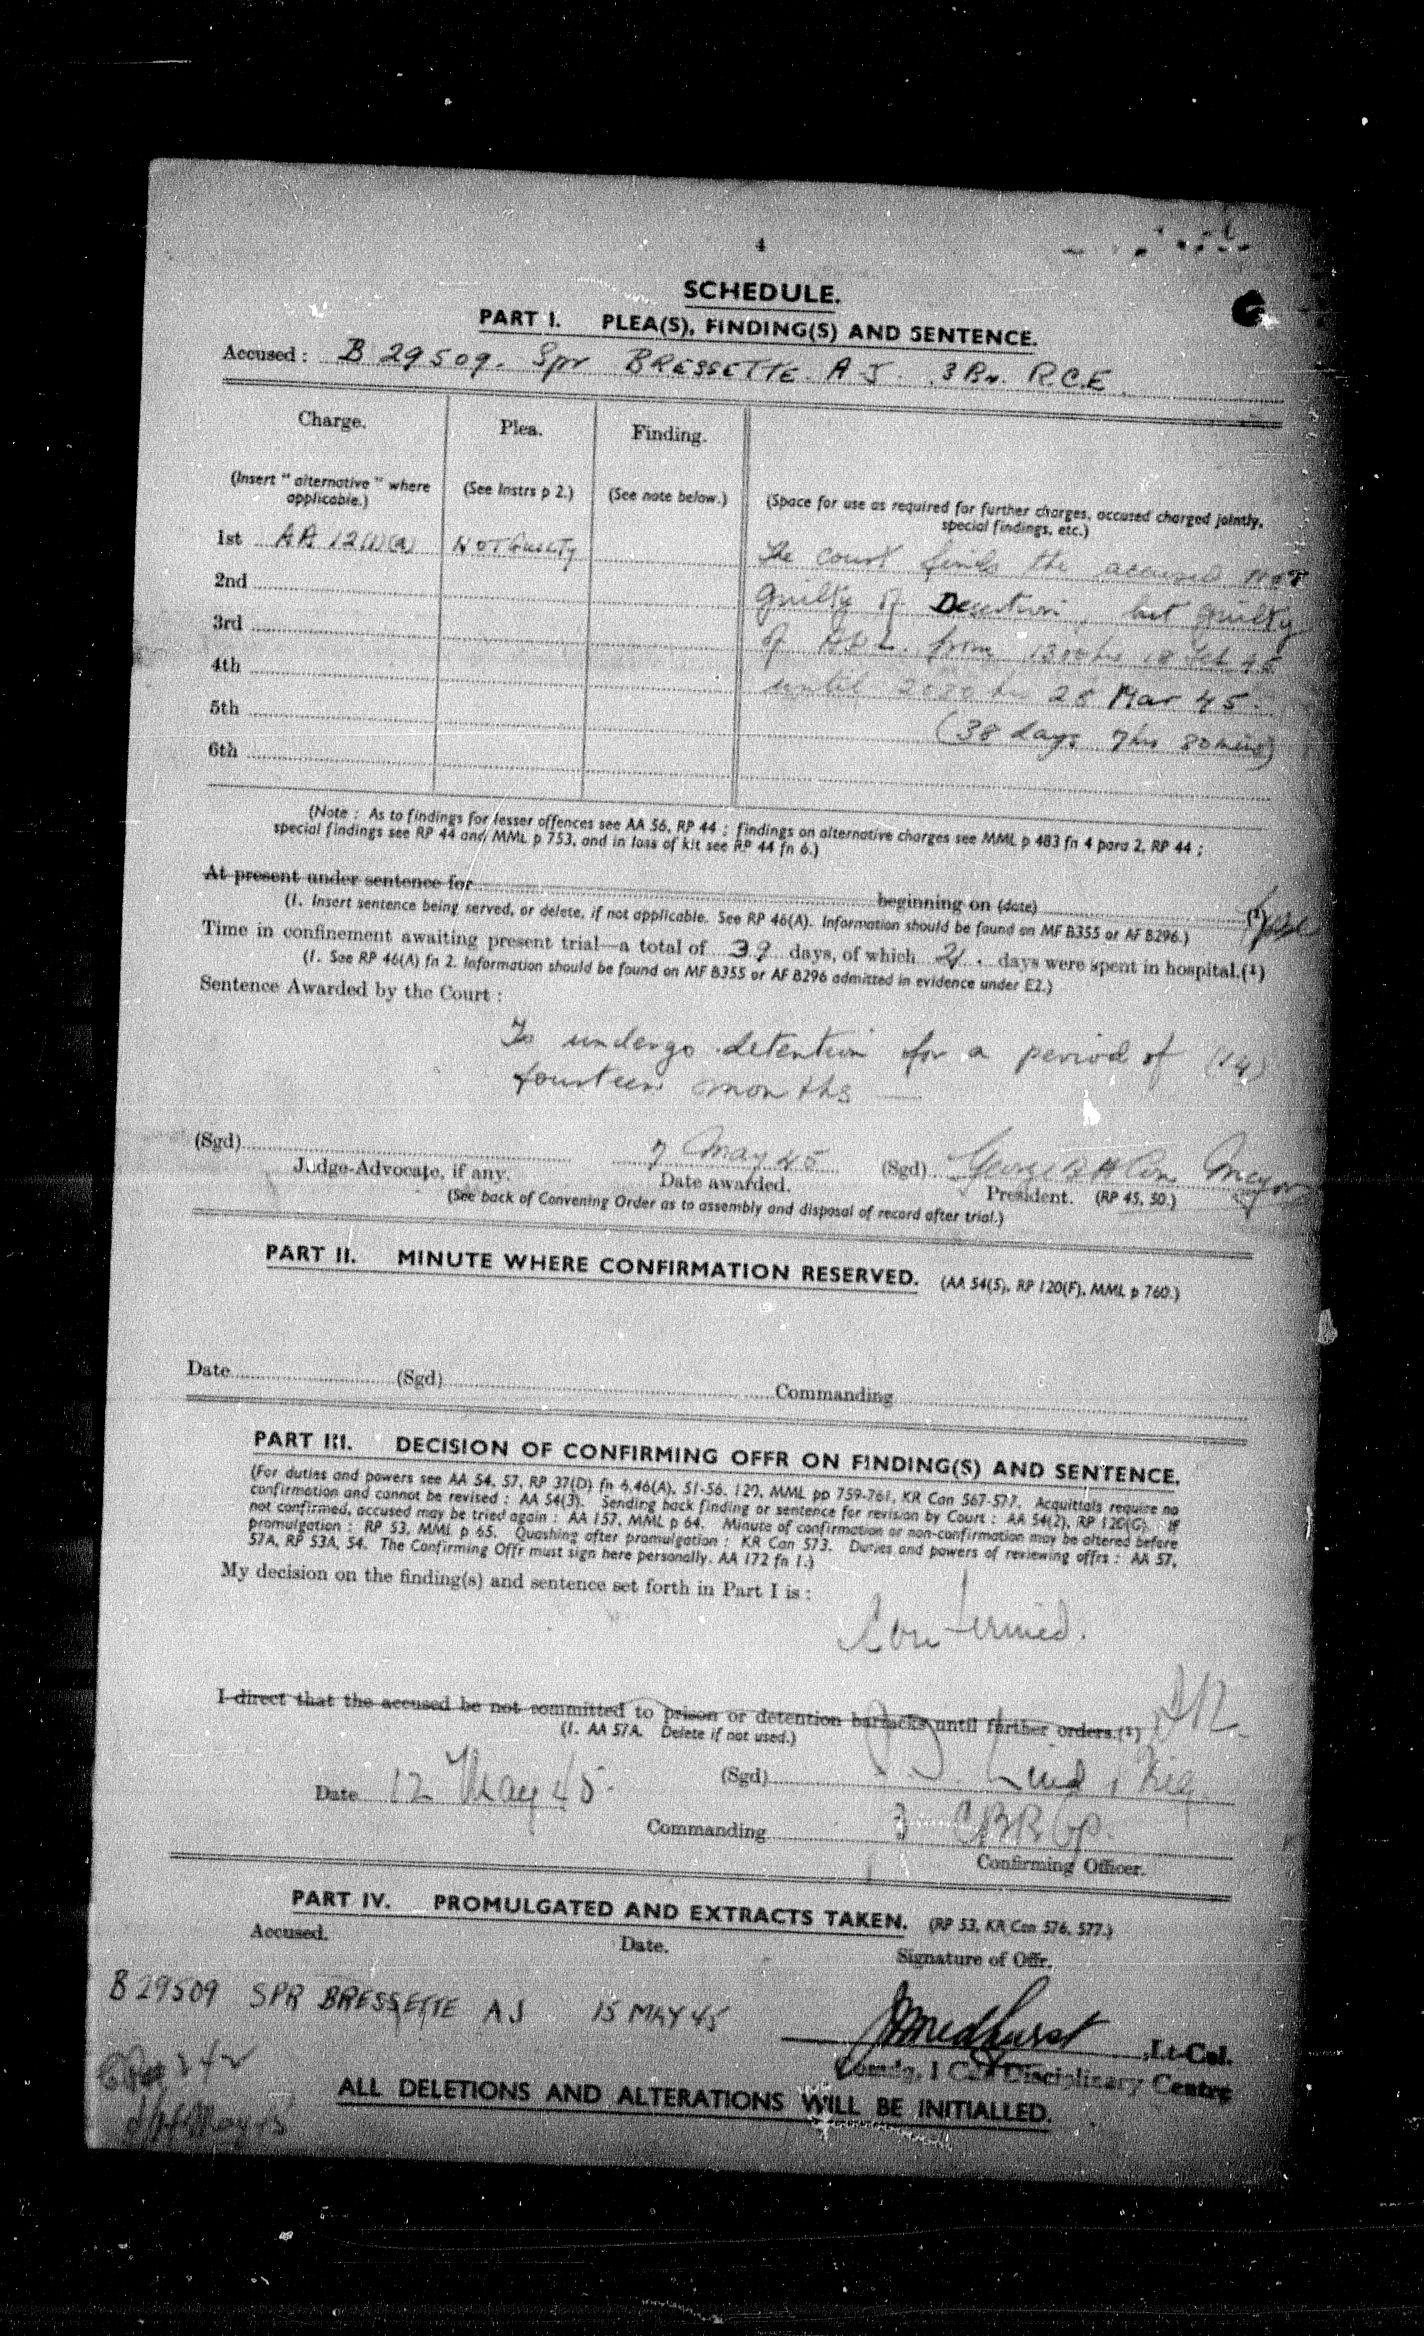 4
SCHEDULE.
PART I. PLEA(S), FINDING(S) AND SENTENCE.
Accused : B 29509. Spr BRESSETTE. A J. 3 Bn. R.C.E.
Charge. Plea. Finding.
(Insert "alternative" where applicable.) (See Instrs p 2.) (See note below.) (Space for use as required for further charges, accused charged jointly, special findings, etc.)
1st AA 12(1)(a) NOT Guilty The court finds the accused NOT
2nd guilty of Desertion, but guilty
3rd of A.W.L. from 1300 hrs 18 Feb 45
4th until 2020 hrs 28 Mar 45.
5th (38 days 7 hrs 20 mins)
6th
(Note : As to findings for lesser offences see AA 56, RP 44 ; findings on alternative charges see MML p 483 fn 4 para 2, RP 44 ;
special findings see RP 44 and MML p 753, and in loss of kit see RP 44 fn 6.)
At present under sentence for beginning on (date) (1)
(1. Insert sentence being served, or delete, if not applicable. See RP 46(A). Information should be found on MF B355 or AF B296.)
Time in confinement awaiting present trial—a total of 39 days, of which days were spent in hospital.(1)
(1. See RP 46(A) fn 2. Information should be found on MF B355 or AF B296 admitted in evidence under E2.)
Sentence Awarded by the Court :
To undergo detention for a period of (14)
fourteen months —
(Sgd) 7 May 45 (Sgd) George Major
Judge-Advocate, if any. Date awarded. President. (RP 45, 50.)
(See back of Convening Order as to assembly and disposal of record after trial.)
PART II. MINUTE WHERE CONFIRMATION RESERVED. (AA 54(5), RP 120(F), MML p 760.)
Date (Sgd) Commanding
PART III. DECISION OF CONFIRMING OFFR ON FINDING(S) AND SENTENCE.
(For duties and powers see AA 54, 57, RP 37(D) fn 6, 46(A), 51-56, 120, MML pp 759-761, KR Can 567-577. Acquittals require no
confirmation and cannot be revised : AA 54(3). Sending back finding or sentence for revision by Court : AA 54(2), RP 120(G). If
not confirmed, accused may be tried again : AA 157, MML p 64. Minute of confirmation or non-confirmation may be altered before
promulgation : RP 53, MML p 65. Quashing after promulgation : KR Can 573. Duties and powers of reviewing offrs : AA 57,
57A, RP 53A, 54. The Confirming Offr must sign here personally, AA 172 fn 1.)
My decision on the finding(s) and sentence set forth in Part I is :
Confirmed.
I direct that the accused be not committed to prison or detention barracks until further orders.(1)
(1. AA 57A. Delete if not used.)
Date 12 May 45. (Sgd) Lind, Brig.
Commanding 3 CBR Gp.
Confirming Officer.
PART IV. PROMULGATED AND EXTRACTS TAKEN. (RP 53, KR Can 576, 577.)
Accused. Date. Signature of Offr.
B 29509 SPR BRESSETTE A J 15 MAY 45 Medhurst, Lt-Col.
Comdg. 1 Cdn Disciplinary Centre
ALL DELETIONS AND ALTERATIONS WILL BE INITIALLED.